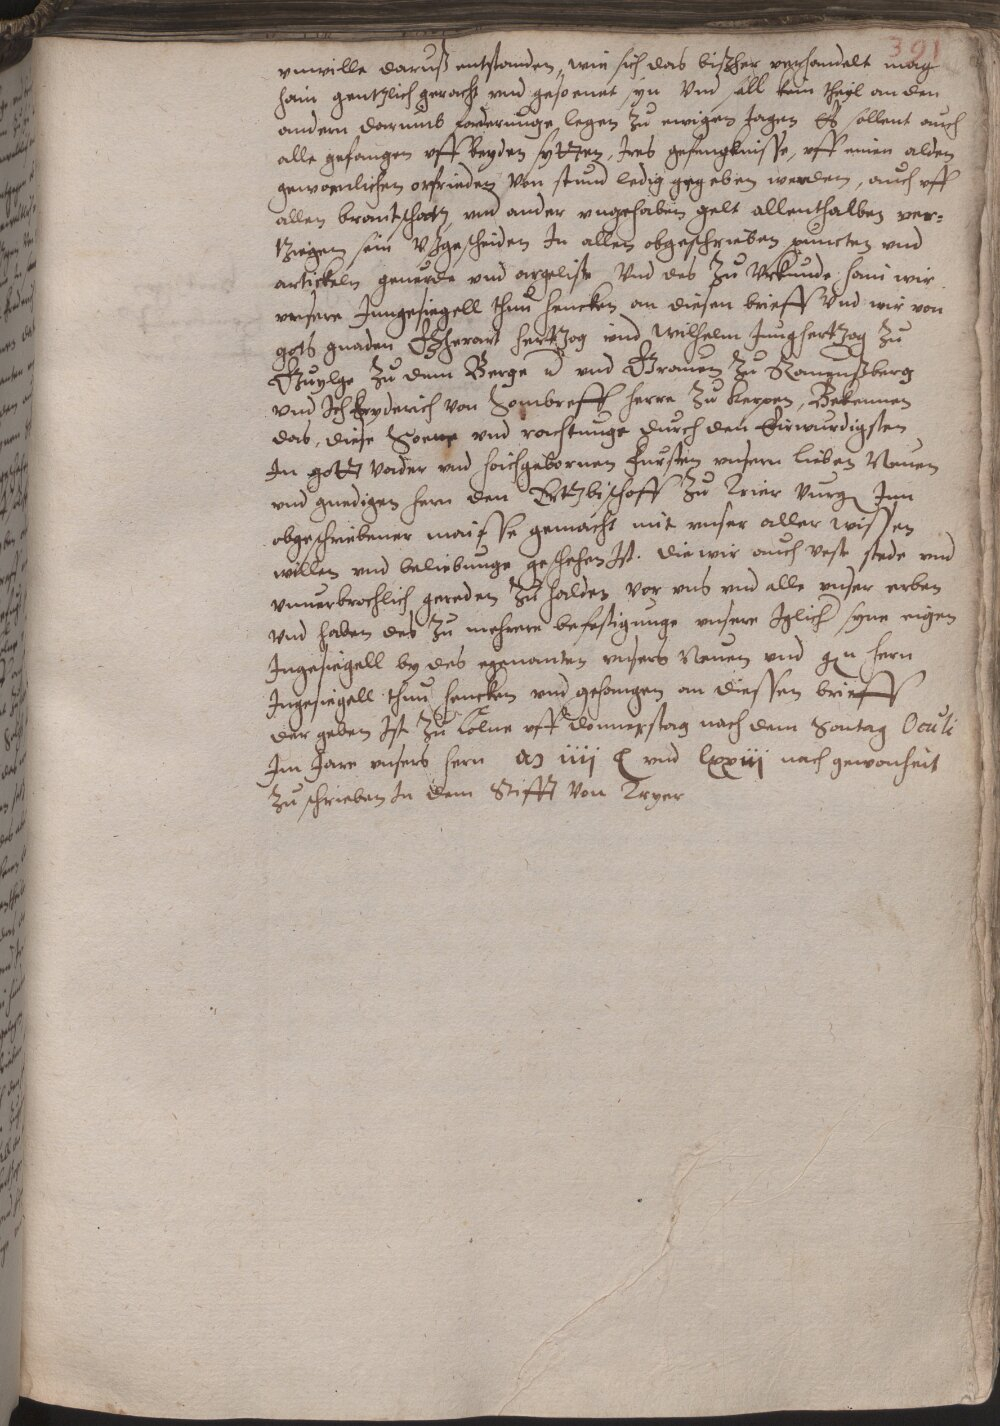 391
vnwille daruß entstanden, wie sich das bißher verhandelt mag
hain gentzlich geracht vnd gesoenet syn Vnd sall kein theyl an den
andern darumb forderunge legen zu ewigen tagen Es sollent auch
alle gefangen vff beyden sytten, Ires gefengknisse, vff einen alden
gewoenlichen orfrieden von stund ledig gegeben werden, auch vff
allen brantschatz vnd ander vngehaben gelt allenthalben ver=
tziegen sein Vßgescheiden In allen obgeschrieben puncten vnd
artickeln geuerde vnd argeliste Vnd des zu Vrkunde hain wir
vnsere Inngesiegell thun hencken an diesen brieff Vnd wir von
gots gnaden Gherart hertzog vnd Wilhelm Junghertzog zu
Guylge zu dem Berge vnd Grauen zu Rauenßberg
vnd Ich Fryderich von Sombreff herre zu kerpen, Bekennen
das, diese Soene vnd rachtunge durch den Eirwurdigsten
In gott vader vnd hoichgebornen fursten vnsern lieben Neuen
vnd gnedigen hern den Ertzbischoff zu Trier vurg Inn
obgeschriebener maisse gemacht mit vnser aller wissen
willen vnd beliebunge geschehen Ist. die wir auch vest stede vnd
vnuerbrochlich gereden zu halden vor vns vnd alle vnser erben
vnd haben des zu mehrere befestigunge vnsere Iglich syne eigen
Ingesiegell by des egenanten vnsers Neuen vnd gn hern
Ingesiegell thun hencken vnd gehangen an diessen brieff
der geben Ist zu Colne vff donnerstag nach dem Sontag Oculi
Im Jare vnsers hern M iiij C vnd lxxiij nach gewonheit
zu schrieben In dem Stifft von Tryer